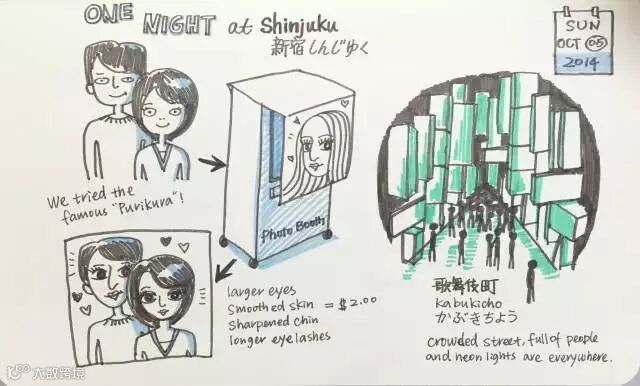 ONE NIGHT at Shinjuku
新宿 しんじゅく
SUN
OCT 05
2014
We tried the
famous "Purikura"!
Photo Booth
larger eyes
Smoothed skin = $2.00
Sharpened chin
longer eyelashes
歌舞伎町
kabukicho
かぶきちょう
crowded street, full of people
and neon lights are everywhere.
大数跨境